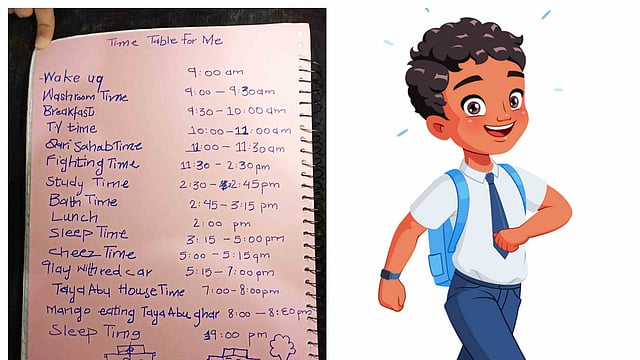 Time Table for Me
Wake up 9:00 am
Washroom Time 9:00 - 9:30am
Breakfast 9:30 - 10:00am
TV time 10:00 - 11:00am
Qari Sahab Time 11:00 - 11:30am
Fighting Time 11:30 - 2:30pm
Study Time 2:30 - 2:45pm
Bath Time 2:45 - 3:15pm
Lunch 2:00 pm
Sleep Time 3:15 - 5:00pm
Cheez Time 5:00 - 5:15pm
Play with red car 5:15 - 7:00pm
Taya Abu House Time 7:00 - 8:00pm
Mango eating Taya Abu ghar 8:00 - 8:30pm
Sleep Time 9:00 pm